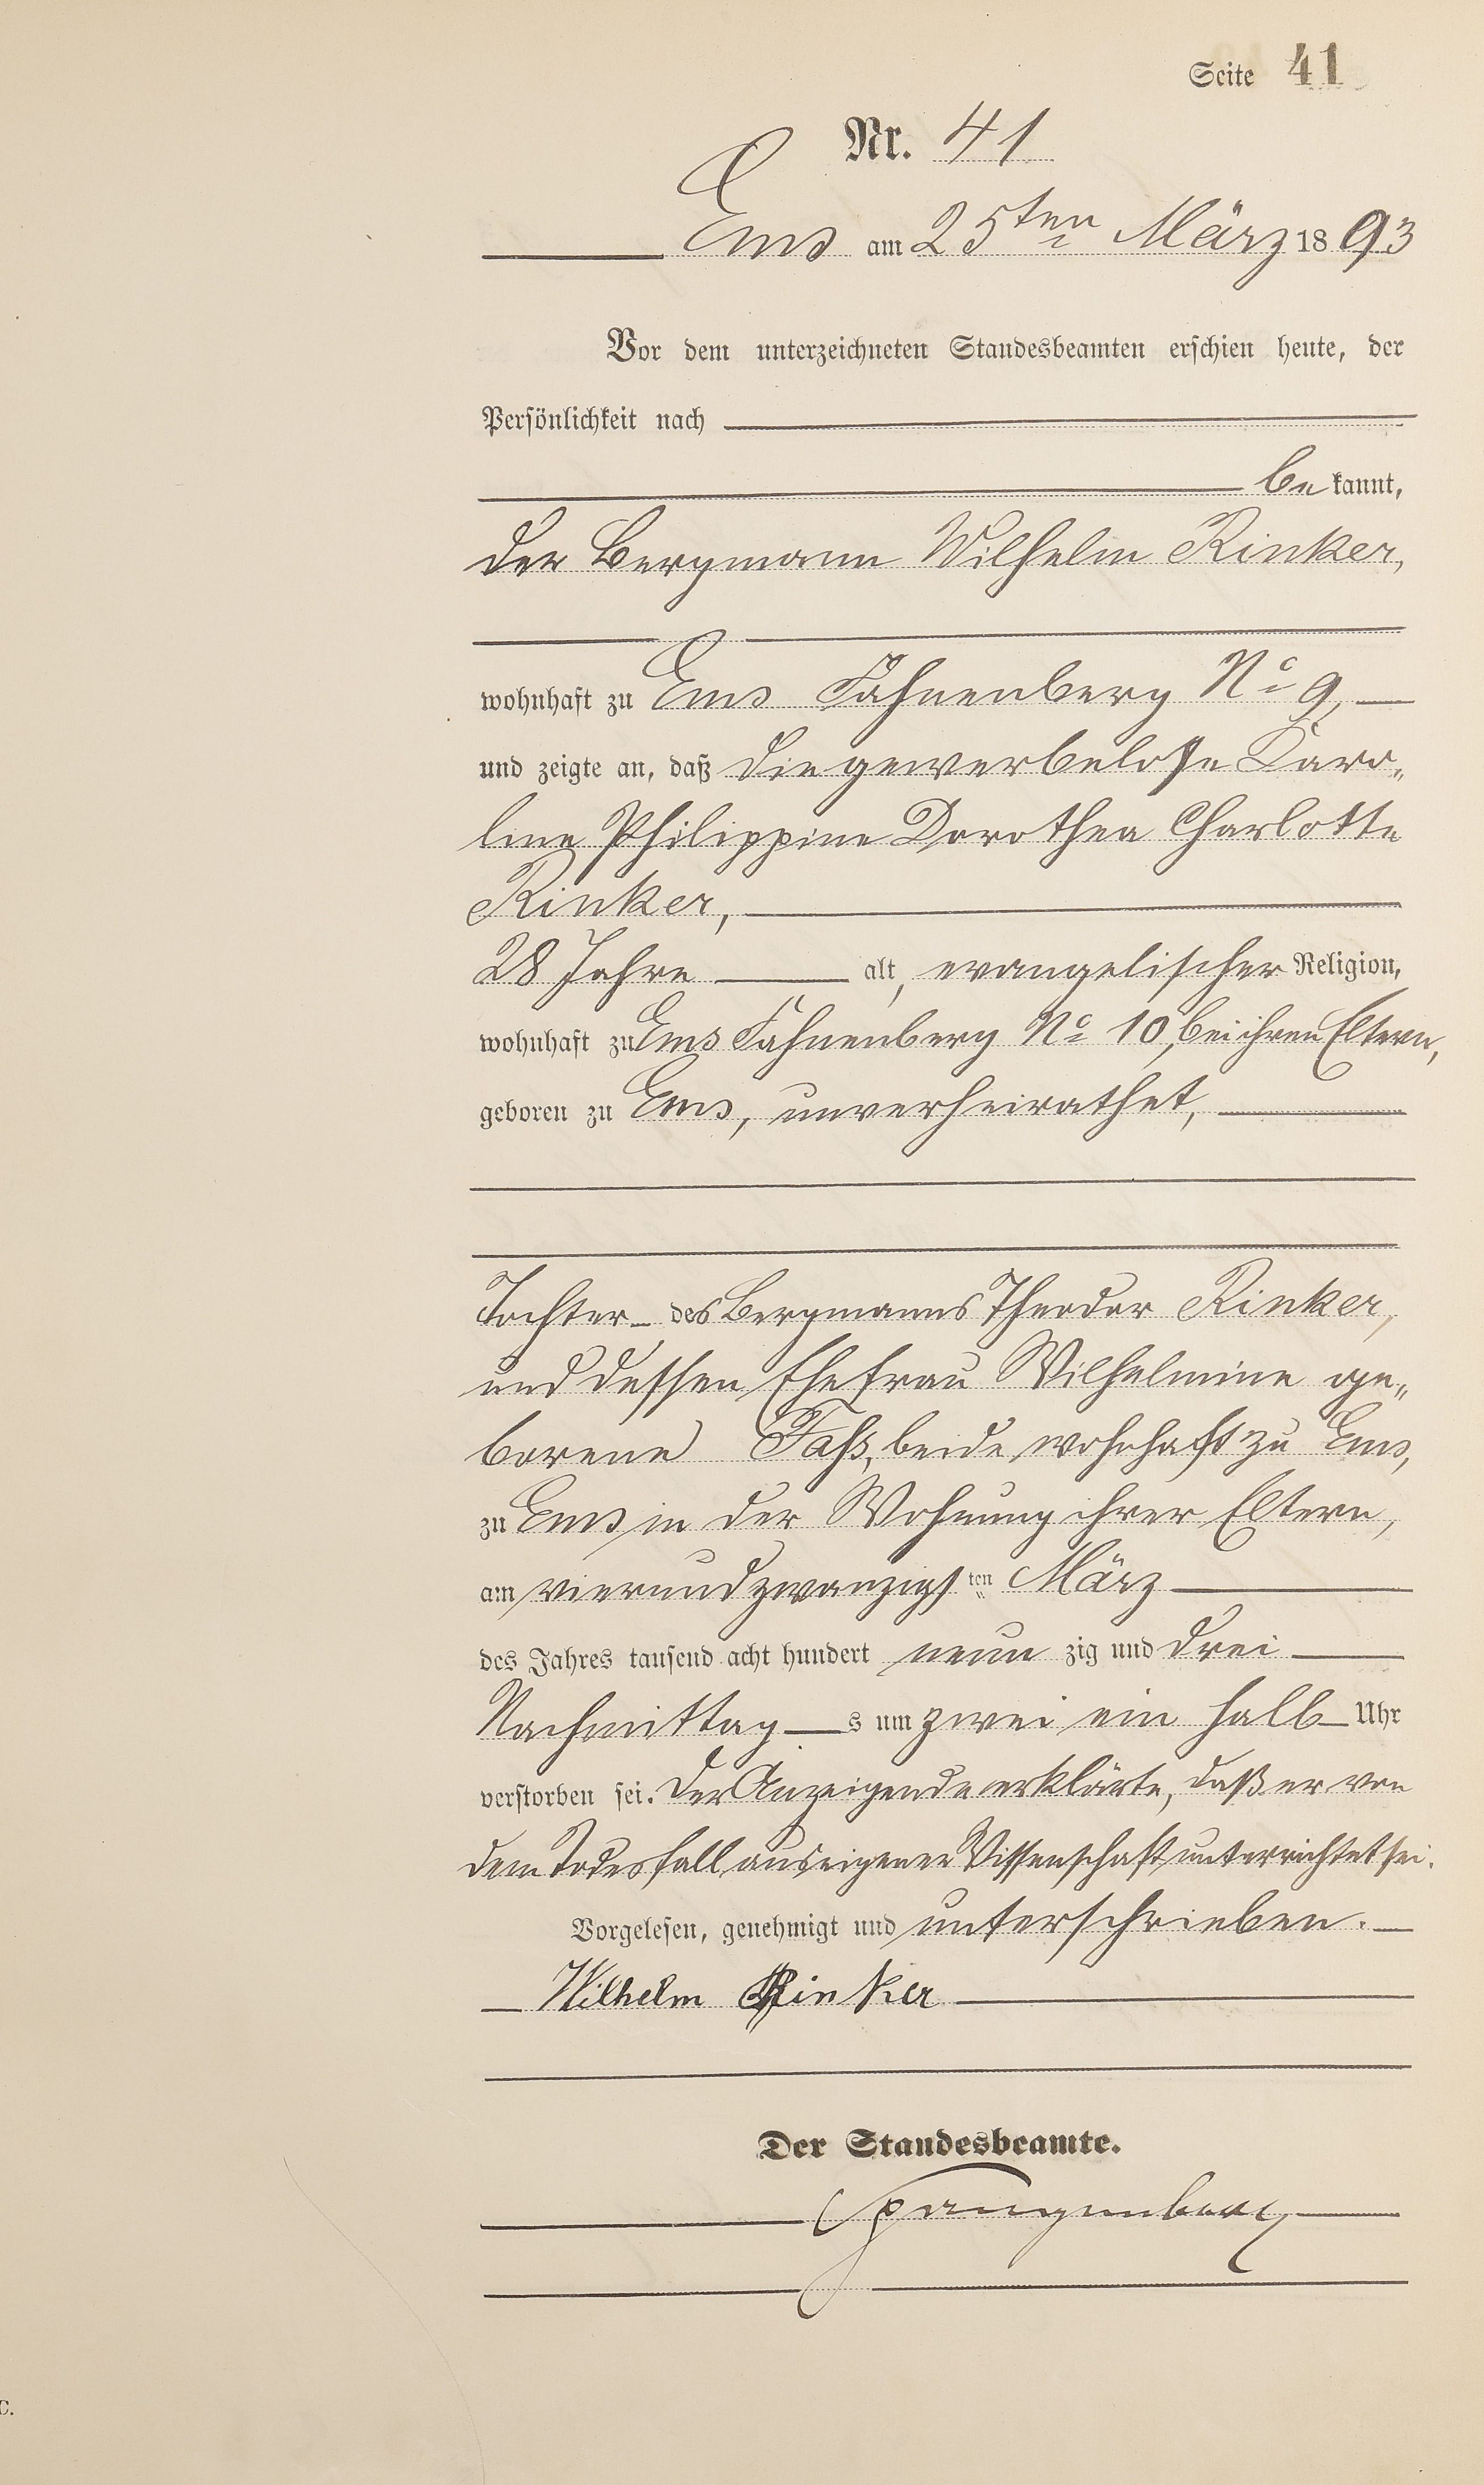 Seite 41
Nr. 41
Ems am 25ten März 1893
Vor dem unterzeichneten Standesbeamten erschien heute, der
Persönlichkeit nach
bekannt,
der Bergmann Wilhelm Rinker,
wohnhaft zu Ems Fahnenberg No 9,
und zeigte an, daß die gewerbelose Karo„
line Philippine Dorothea Charlotte
Rinker,
28 Jahre alt, evangelischer Religion,
wohnhaft zu Ems Fahnenberg No 10, bei ihren Eltern,
geboren zu Ems, unverheirathet,
Tochter des Bergmanns Theodor Rinker,
und dessen Ehefrau Wilhelmine ge„
borene Faß, beide wohnhaft zu Ems,
zu Ems in der Wohnung ihrer Eltern,
am vierundzwanzigsten März
des Jahres tausend acht hundert neunzig und drei
Nachmittags um zwei ein halb Uhr
verstorben sei. Der Anzeigende erklärte, daß er von
dem Todesfall aus eigener Wissenschaft unterrichtet sei.
Vorgelesen, genehmigt und unterschrieben.
Wilhelm Rinker
Der Standesbeamte.
Spangenberg
C.